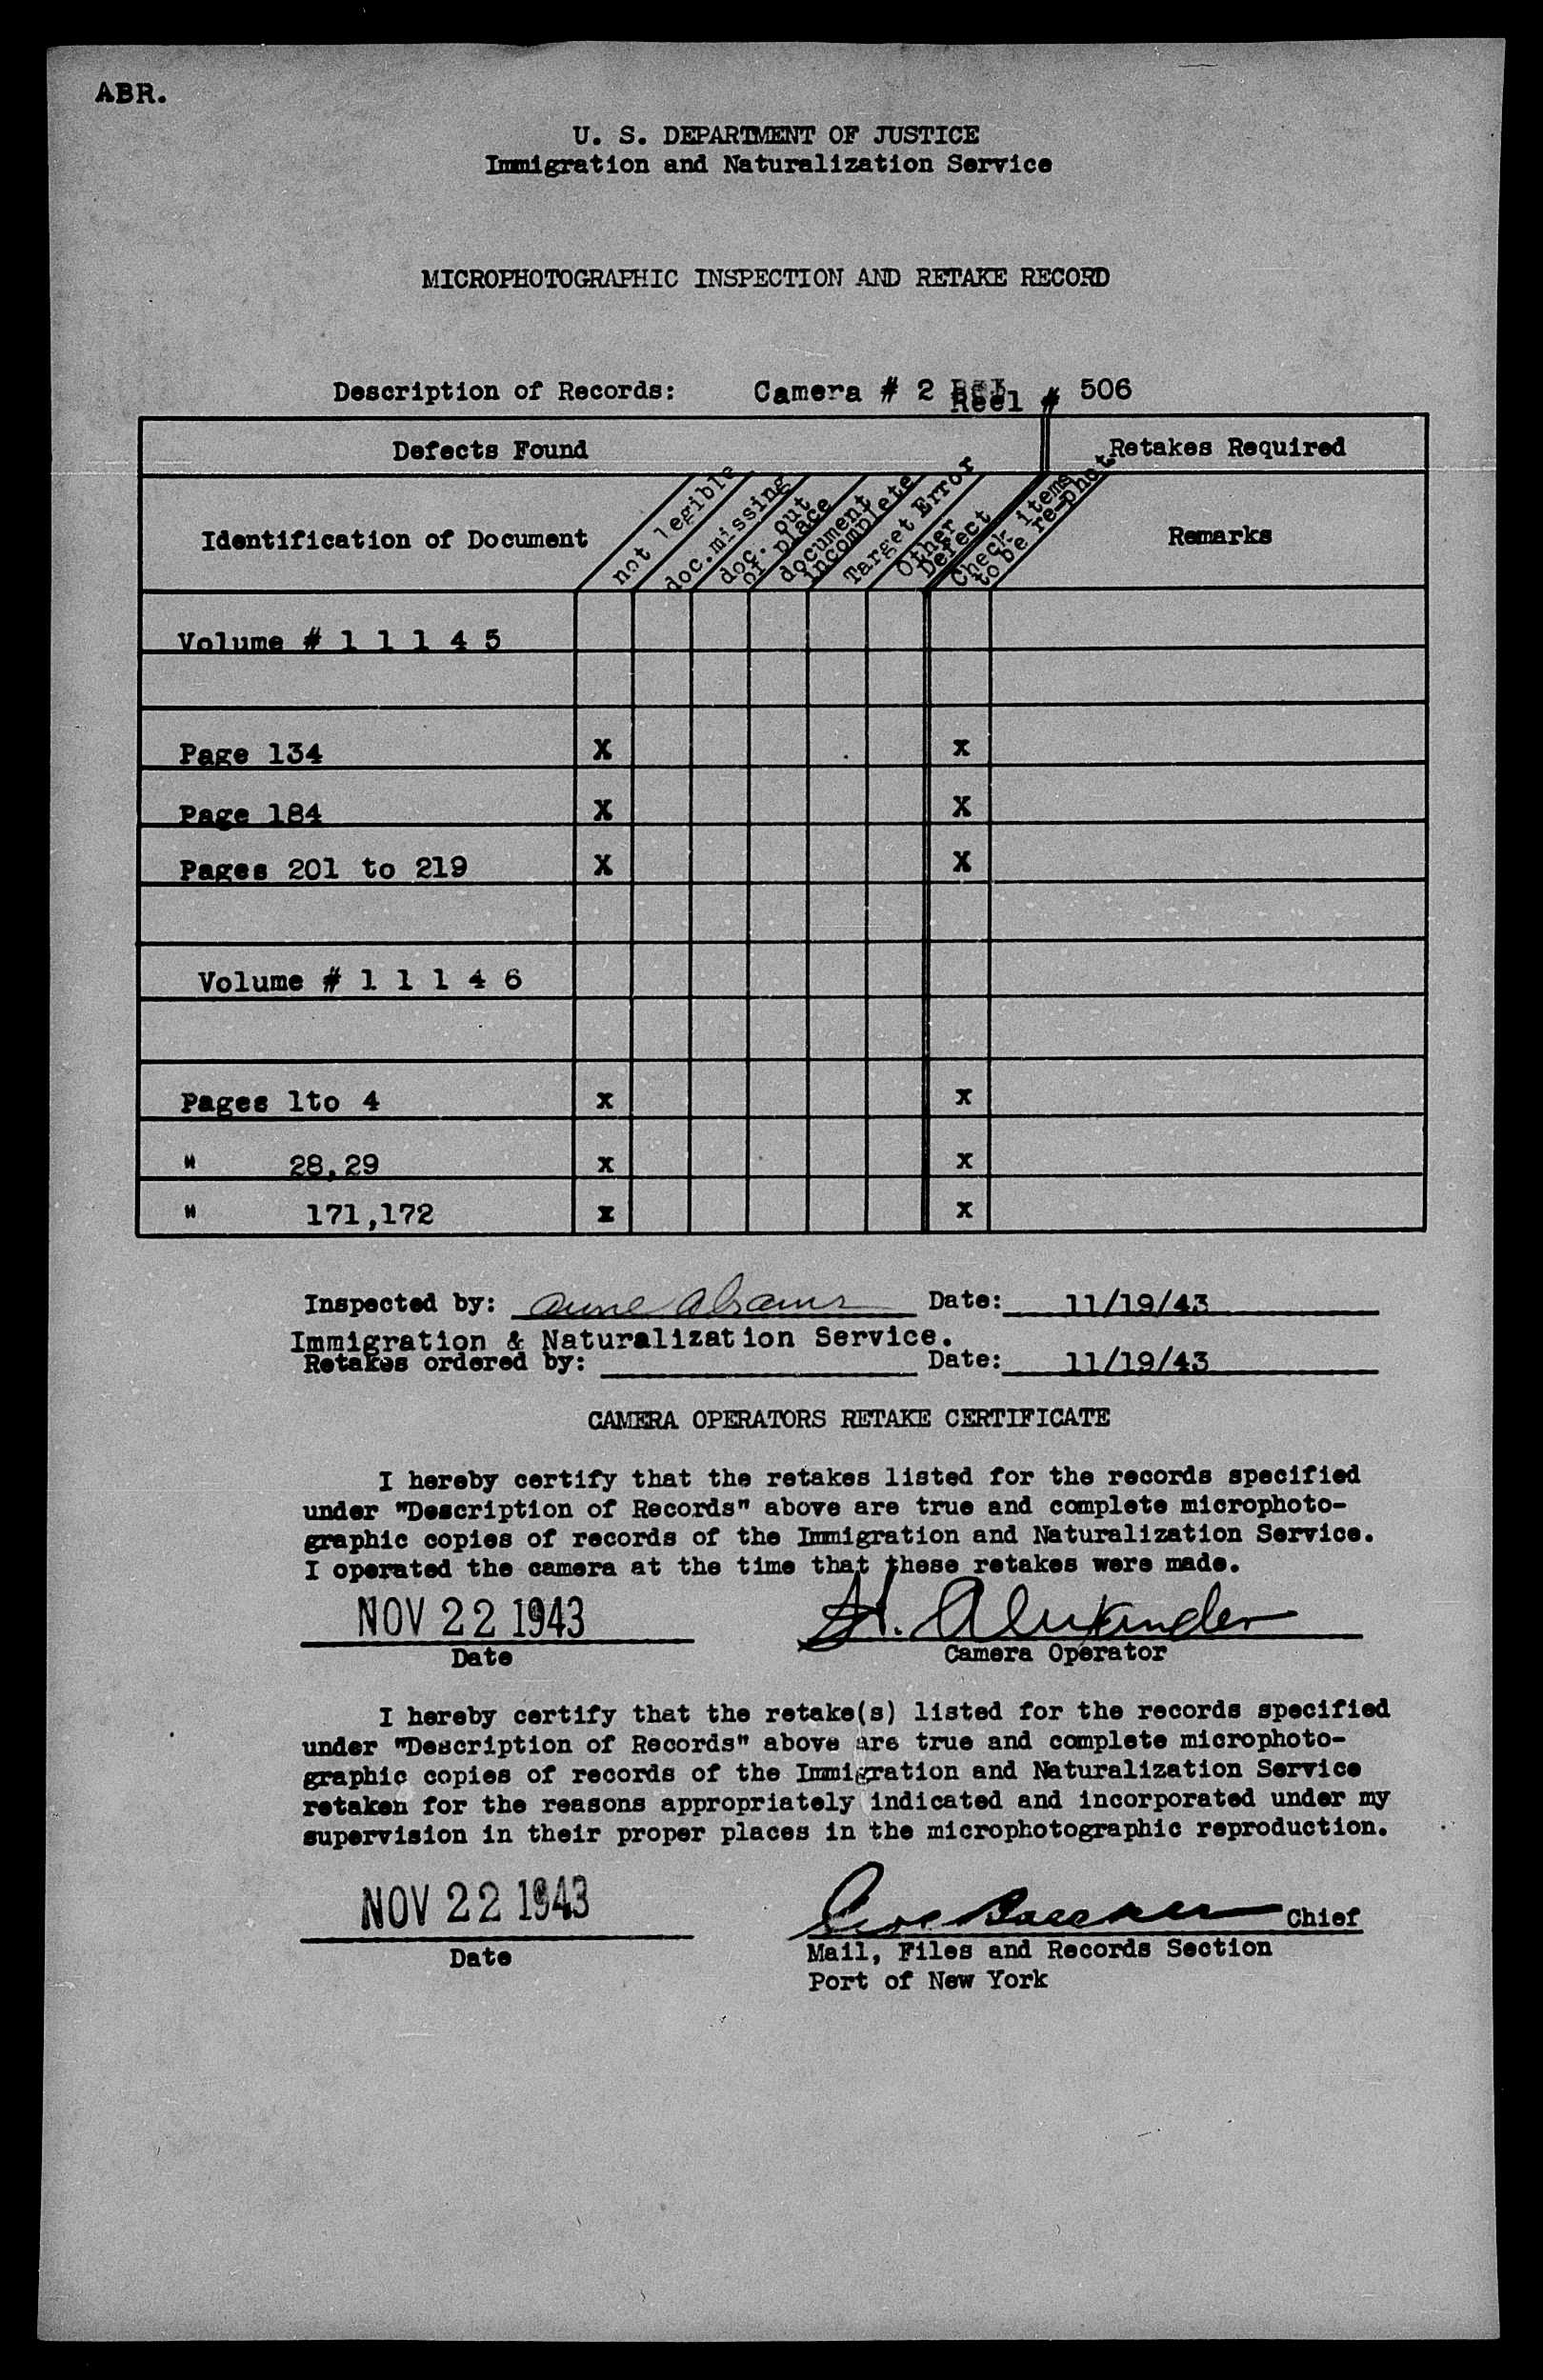 ABR.
U. S. DEPARTMENT OF JUSTICE
Immigration and Naturalization Service
MICROPHOTOGRAPHIC INSPECTION AND RETAKE RECORD
Description of Records: Camera # 2 Reel # 506
Defects Found Retakes Required
Identification of Document
not legible
doc.missing
doc. out
of place
document
incomplete
Target Error
Other
Defect
Check items
to be re-phot
Remarks
Volume # 1 1 1 4 5
Page 134 X x
Page 184 X X
Pages 201 to 219 X X
Volume # 1 1 1 4 6
Pages 1to 4 x x
" 28,29 x x
" 171,172 x x
Inspected by: Anne Abrams Date: 11/19/43
Immigration & Naturalization Service.
Retakes ordered by: Date: 11/19/43
CAMERA OPERATORS RETAKE CERTIFICATE
I hereby certify that the retakes listed for the records specified
under "Description of Records" above are true and complete microphoto-
graphic copies of records of the Immigration and Naturalization Service.
I operated the camera at the time that these retakes were made.
NOV 22 1943 H. Alexander
Date Camera Operator
I hereby certify that the retake(s) listed for the records specified
under "Description of Records" above are true and complete microphoto-
graphic copies of records of the Immigration and Naturalization Service
retaken for the reasons appropriately indicated and incorporated under my
supervision in their proper places in the microphotographic reproduction.
NOV 22 1943 Chief
Date Mail, Files and Records Section
Port of New York